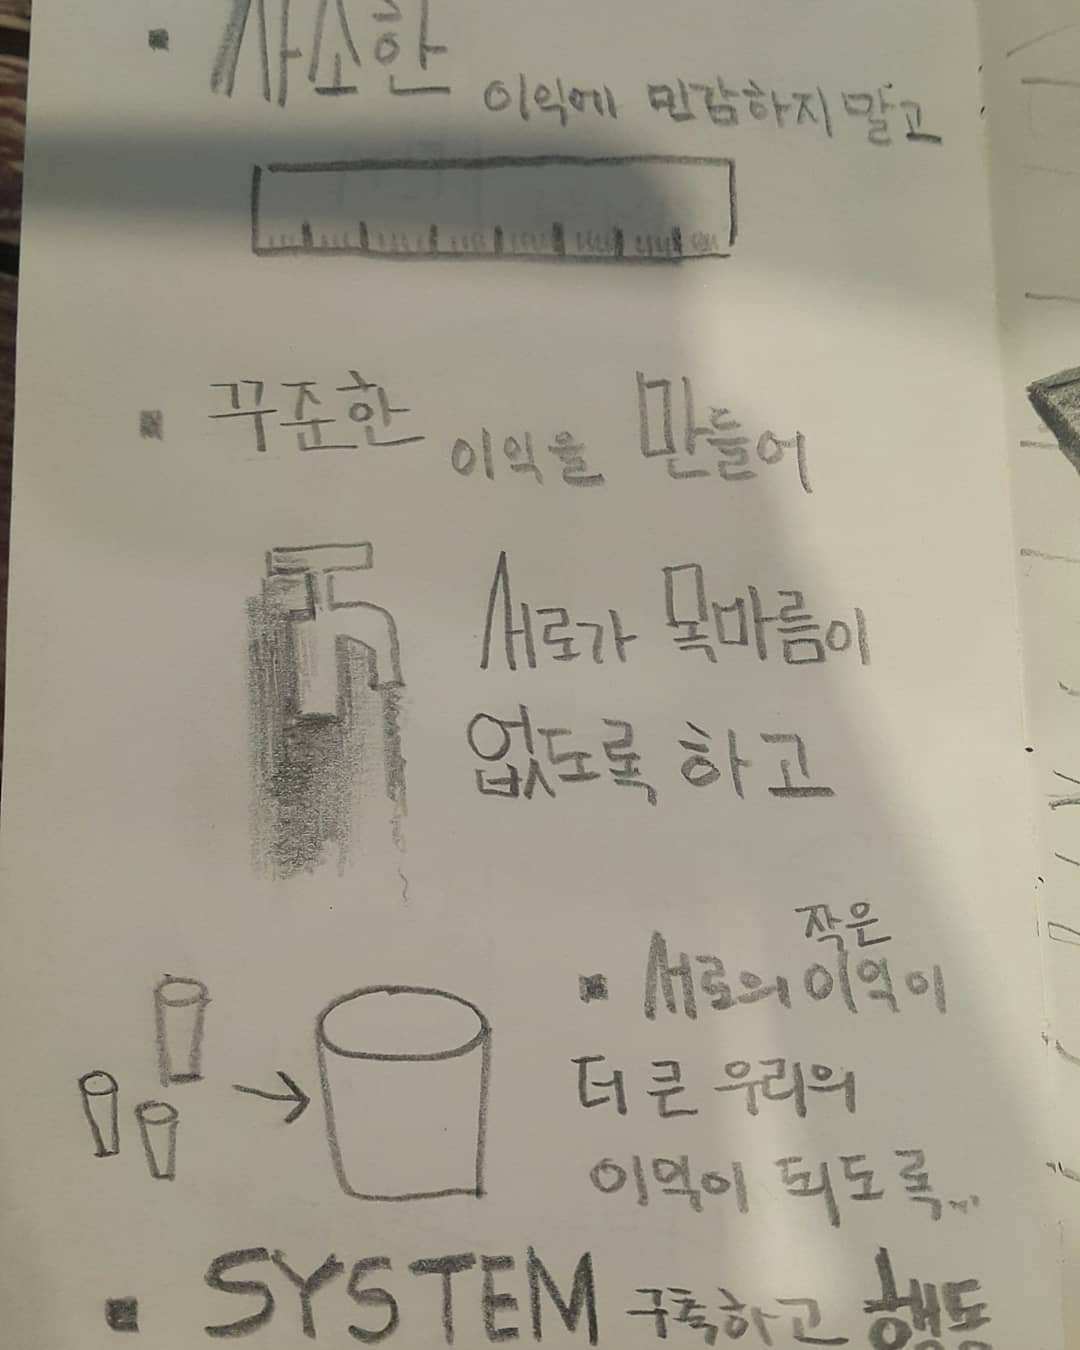 사소한 이익에 민감하지 말고
꾸준한 이익을 만들어
서로가 목마름이
없도록 하고
작은
서로의 이익이
더 큰 우리의
이익이 되도록...
SYSTEM 구축하고 행동